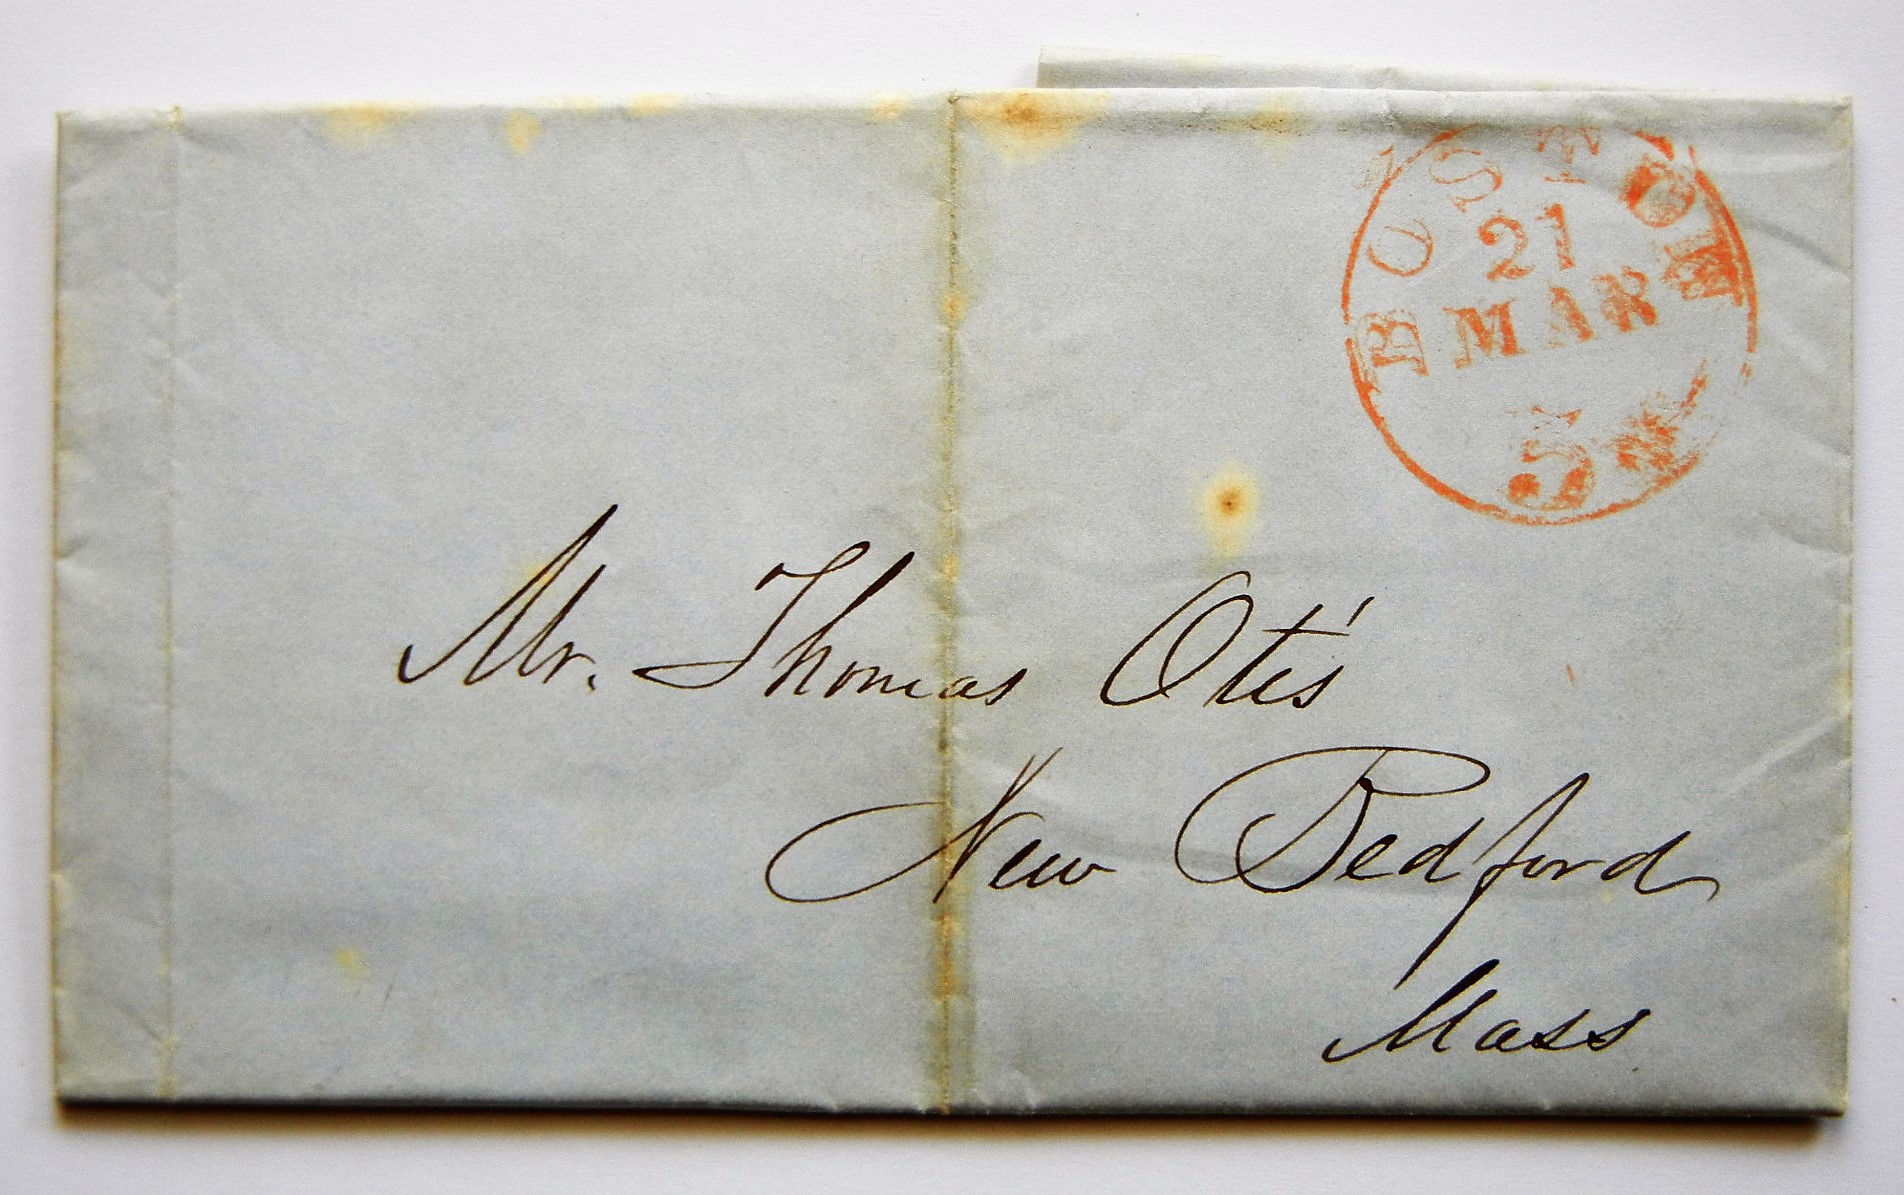 BOSTON
21
MAR
5
Mr. Thomas Otis
New Bedford
Mass